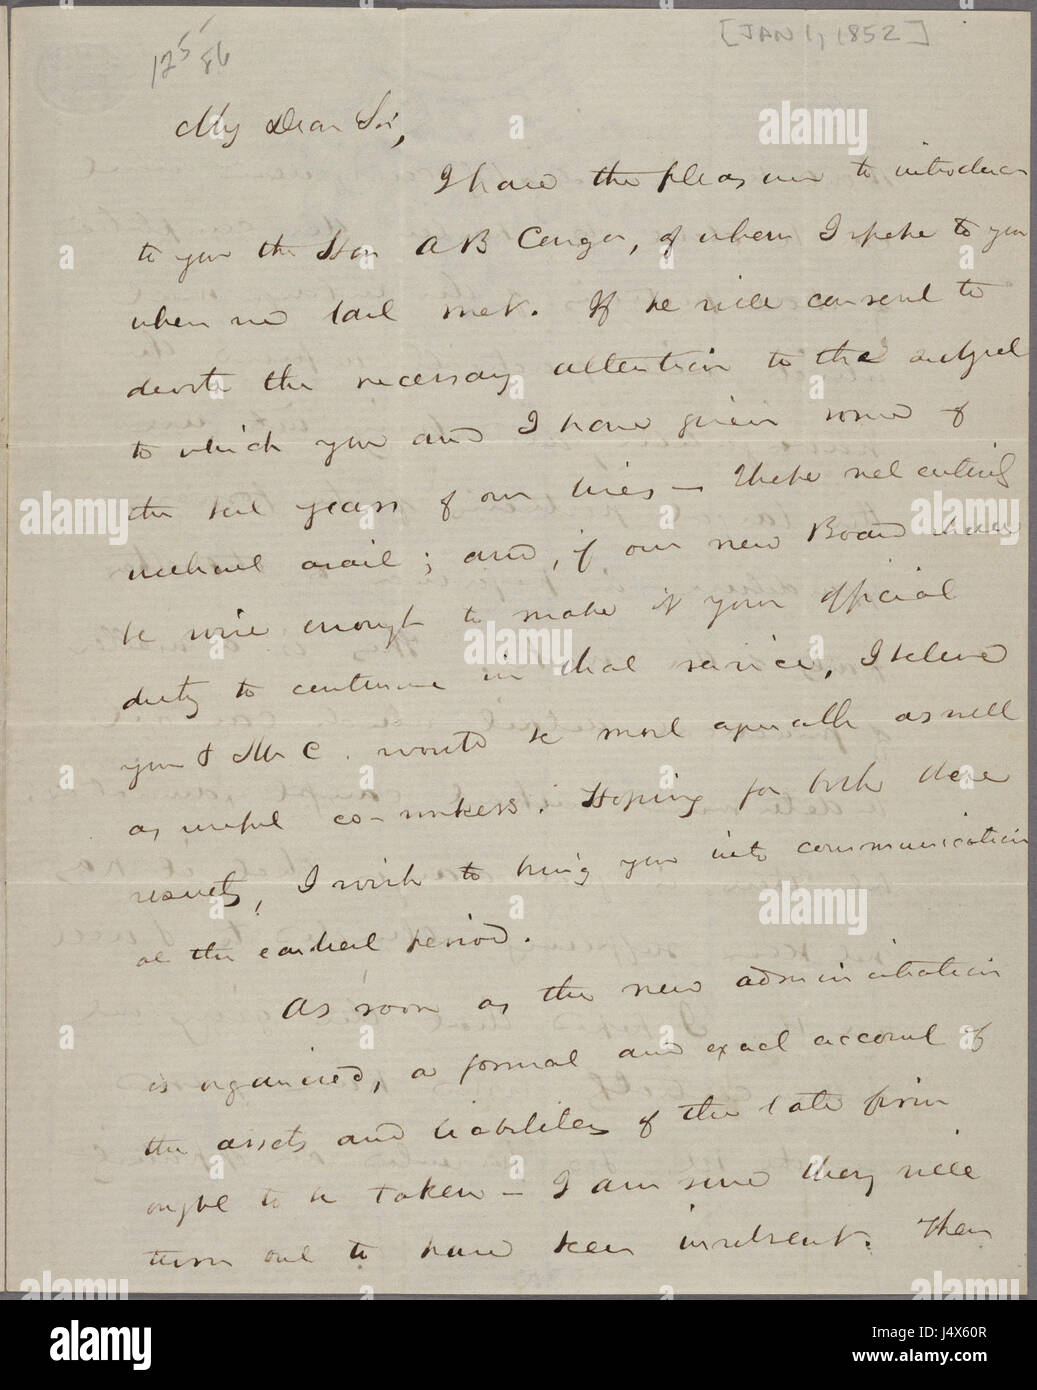 [JAN 1, 1852]
125
86
My Dear Sir,
I have the pleasure to introduce
to you the Hon A B Conger, of whom I spoke to you
when we last met. If he will consent to
devote the necessary attention to the subject
to which you and I have given some of
the best years of our lives — the
without avail; and, if our new Board shall
be wise enough to make it your official
duty to continue in that service, I believe
you & Mr C. would be most agreeable as well
as useful co-workers. Hoping for both these
results, I wish to bring you into communication
at the earliest period.
As soon as the new administration
is organized, a formal and exact account of
the assets and liabilities of the late firm
ought to be taken — I am sure they will
turn out to have been insolvent. Then
alamy stock photo
J4X60R
www.alamy.com